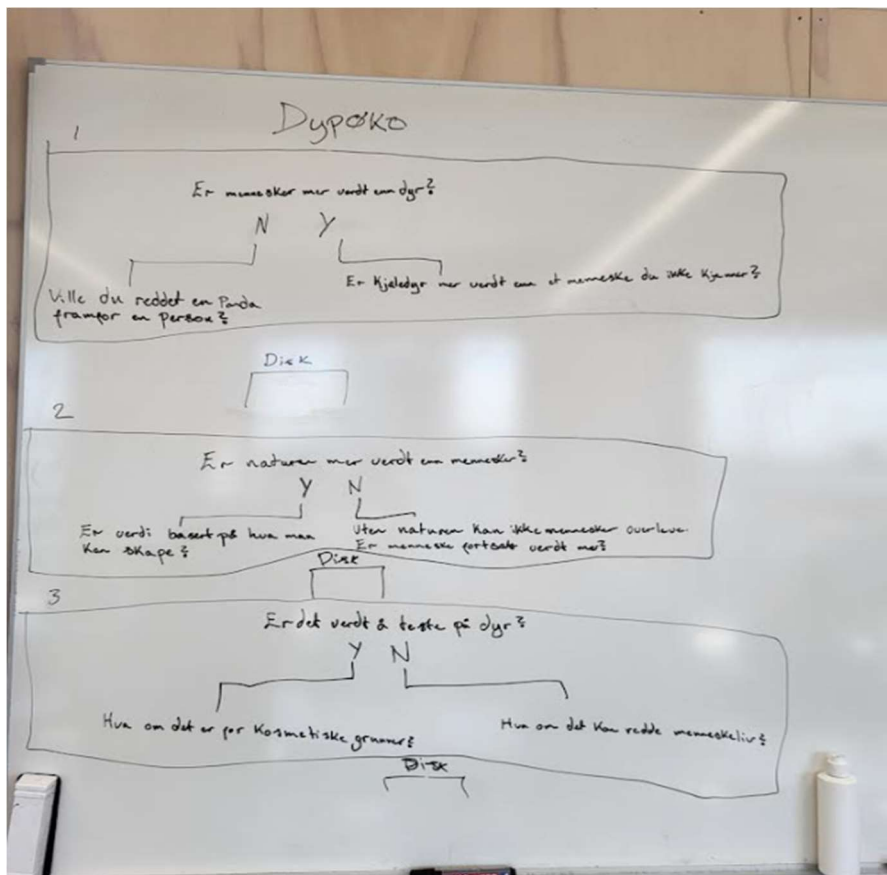 Dypøko
1
Er mennesker mer verdt enn dyr?
N Y
Ville du reddet en Panda
framfor en person?
Er Kjeledyr mer verdt enn et menneske du ikke kjenner?
Disk
2
Er naturen mer verdt enn mennesker?
Y N
Er verdi basert på hva man
Kan skape?
Uten naturen kan ikke mennesker overleve.
Er menneske fortsatt verdt mer?
Disk
3
Er det verdt å teste på dyr?
Y N
Hva om det er for Kosmetiske grunner?
Hva om det kan redde menneskeliv?
Disk